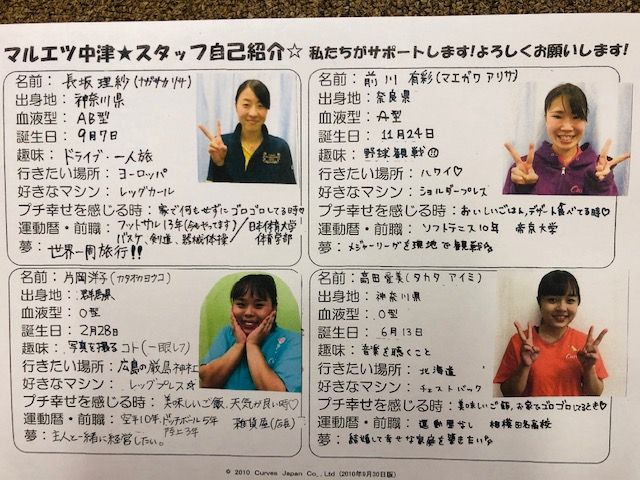 マルエツ中津★スタッフ自己紹介☆ 私たちがサポートします!よろしくお願いします!
名前： 長坂 理紗(ナガサカ リサ)
出身地： 神奈川県
血液型： AB型
誕生日： 9月7日
趣味： ドライブ・一人旅
行きたい場所： ヨーロッパ
好きなマシン： レッグカール
プチ幸せを感じる時： 家で何もせずにゴロゴロしてる時♡
運動暦・前職： フットサル13年(今もやってます) / 日本体育大学
バスケ、剣道、器械体操 / 体育学部
夢： 世界一周旅行!!
名前： 前川 有彩(マエガワ アリサ)
出身地： 奈良県
血液型： A型
誕生日： 11月24日
趣味： 野球観戦
行きたい場所： ハワイ♡
好きなマシン： ショルダープレス
プチ幸せを感じる時： おいしいごはん、デザート食べてる時♡
運動暦・前職： ソフトテニス10年 帝京大学
夢： メジャーリーグを現地で観戦☆
名前： 片岡洋子(カタオカヨウコ)
出身地： 群馬県
血液型： O型
誕生日： 2月28日
趣味： 写真を撮るコト(一眼レフ)
行きたい場所： 広島の厳島神社
好きなマシン： レッグプレス☆
プチ幸せを感じる時： 美味しいご飯、天気が良い時♡
運動暦・前職： 空手10年、ドッチボール5年 雑貨屋(店長)
陸上3年
夢： 主人と一緒に経営したい。
名前： 高田 愛美(タカタ アイミ)
出身地： 神奈川県
血液型： O型
誕生日： 6月13日
趣味： 音楽を聴くこと
行きたい場所： 北海道
好きなマシン： チェストバック
プチ幸せを感じる時： 美味しいご飯、お家でゴロゴロしてるとき♡
運動暦・前職： 運動暦なし 相模田名高校
夢： 結婚して幸せな家庭を築きたい☆
© 2010 Curves Japan Co., Ltd (2010年9月30日版)